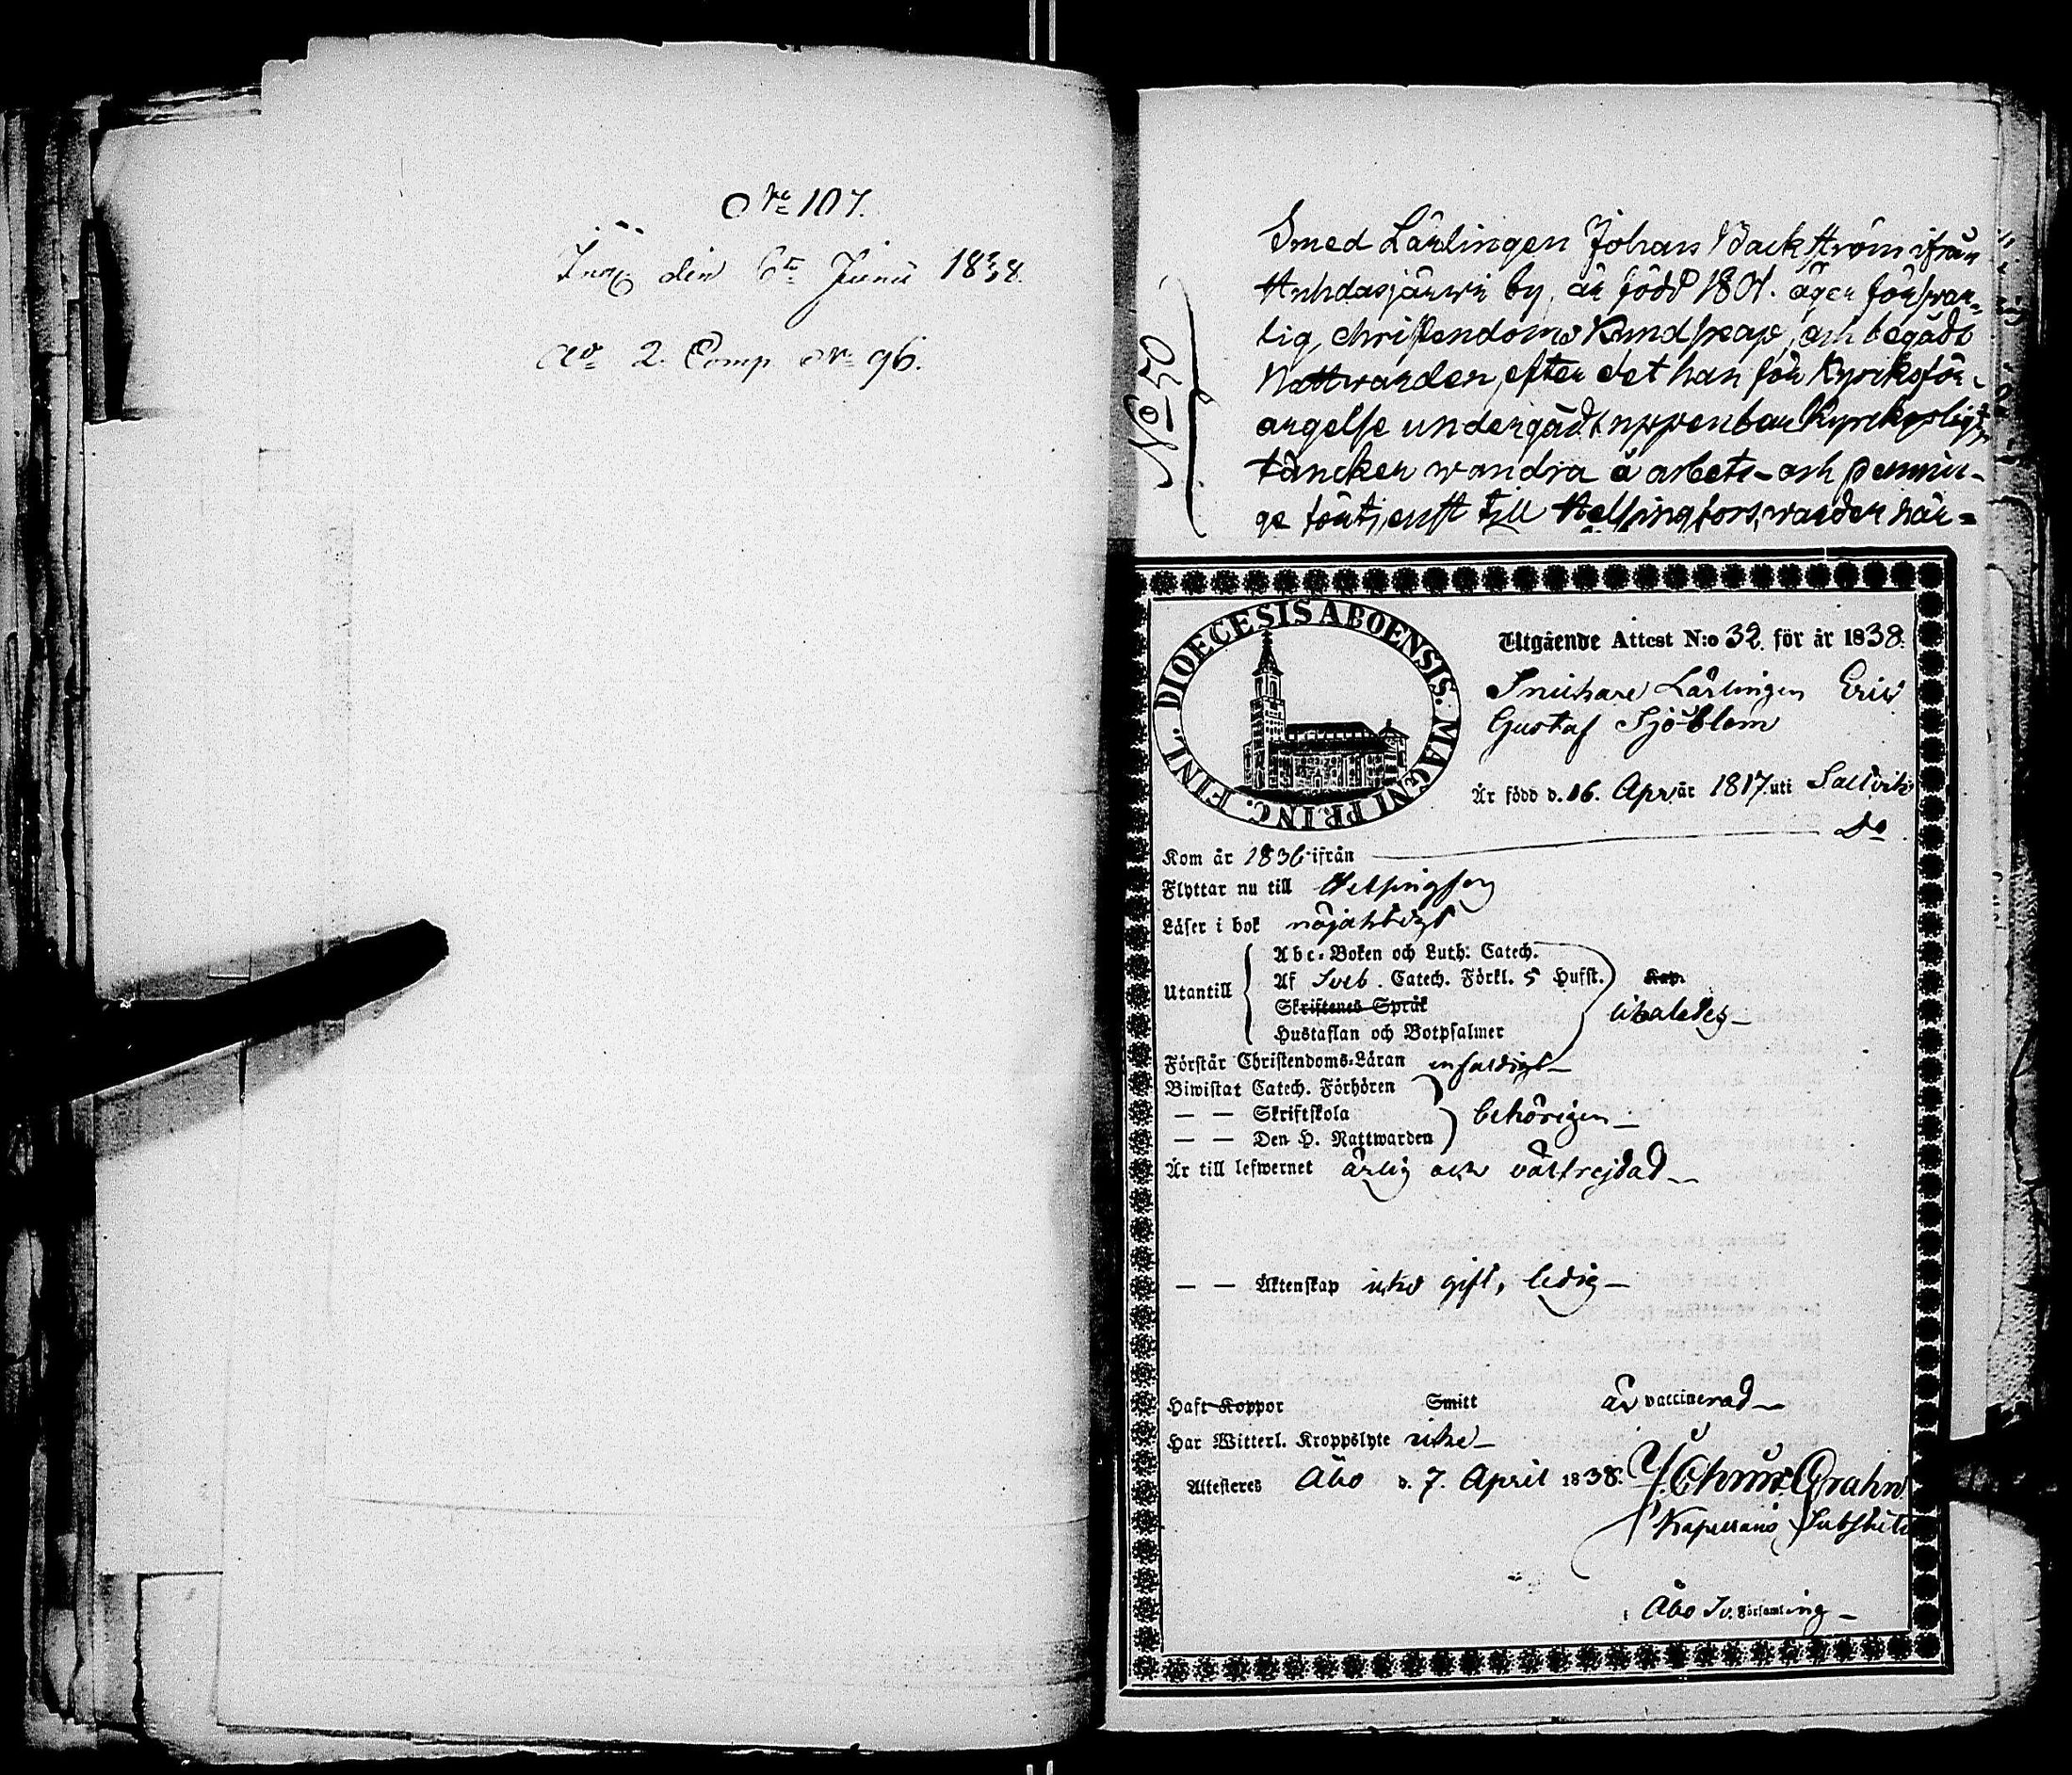 No 107.
Ing. den 6te Junii 1838.
2. Comp. No 96.
No 50
Smed Lärlingen Johan Backström ifrån
by, är född 1801. äger försvar-
lig christendoms Kundskap, och begådt
Nattvarden, efter det han för Kyrkoför-
argelse undergådt uppenbar Kyrkoplig
täncker wandra å arbets- och penning-
ge förtjenst till Helsingfors, warder här-
DIOECESIS ABOENSIS. MAGNI PRINC. FINL.
Utgående Attest N:o 32. för år 1838.
Snickare Lärlingen Eric
Gustaf Sjöblom
Är född d. 16. Apr. år 1817. uti Saltvik
Kom år 1836 ifrån Do
Flyttar nu till Helsingfors
Läser i bok nöjaktigt
Utantill
Abc-Boken och Luth: Catech.
Af Sveb. Catech. Förkl. 5 Hufst. Kap.
Skriftenes Språk
likaledes
Hustaflan och Botpsalmer
Förstår Christendoms-Läran enfaldigt
Biwistat Catech. Förhören
— — Skriftskola behörigen
— — Den H. Nattwarden
Är till lefwernet ärlig och välfrejdad
— — Äktenskap icke gift, ledig
Haft Koppor Smitt är vaccinerad
Har Witterl. Kroppslyte icke
Attesteres Åbo d. 7. April 1838. Grahn
Kapellans Substitut
i Åbo Sv. Församling